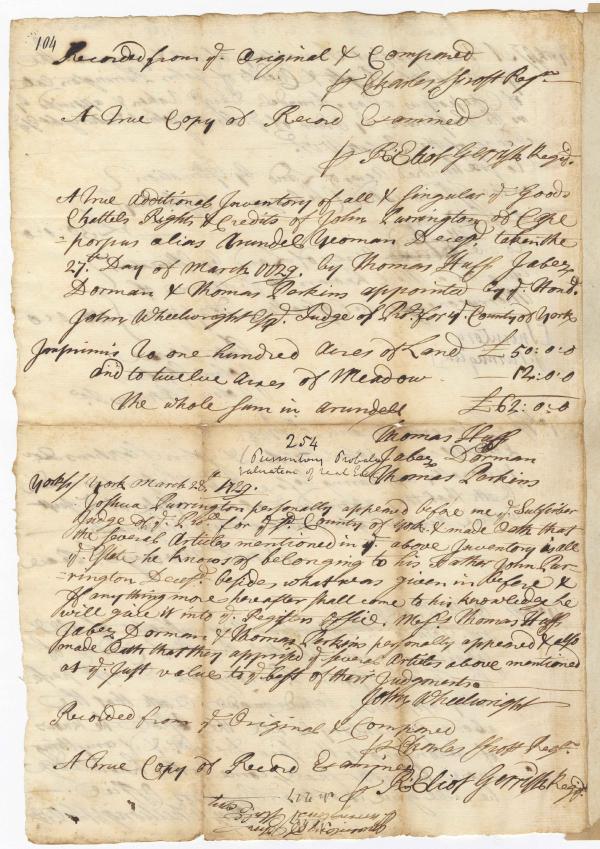 104
Recorded from ye. Original & Compared
pr Charles Frost Regr.
A True Copy of Record Examined
pr R: Eliot Gerrish Regr.
A True additional Inventory of all & Singular ye Goods
Chattels Rights & Credits of John Purrington of Cape
=porpus alias Arundel Yeoman Decesd. taken the
27.th Day of March 1729. by Thomas Huff Jabez
Dorman & Thomas Perkins appointed by ye. Hond.
John Wheelwright Esqr. Judge of Prob. for ye. County of York
Imprimis To one hundred Acres of Land £50:0:0
and to twelve Acres of Meadow. 12:0:0
The whole sum in Arundell £62:0:0
254
Thomas Huff
Jabez Dorman
Thomas Perkins
(Purrinton Probate
Valuation of real Est
York ss/ York March 28.th 1729.
Joshua Purrington personally appeared before me ye. Subscriber
Judge of ye. Prob. for ye. sd. County of York & made Oath that
the several Articles mentioned in ye. above Inventory is all
ye. Estate he knows of belonging to his Father John Pur-
=rington Decesd. besides what was given in before &
if any thing more hereafter shall come to his knowledge he
will give it into ye. Registers Office. Messrs. Thomas Huff,
Jabez Dorman & Thomas Perkins personally appeared & also
made Oath that they apprised ye several Articles above mentioned
at ye. Just value to ye. best of their Judgments.
John Wheelwright
Recorded from ye. Original & Compared
pr Charles Frost Regr.
A True Copy of Record Examined
pr R: Eliot Gerrish Regr.